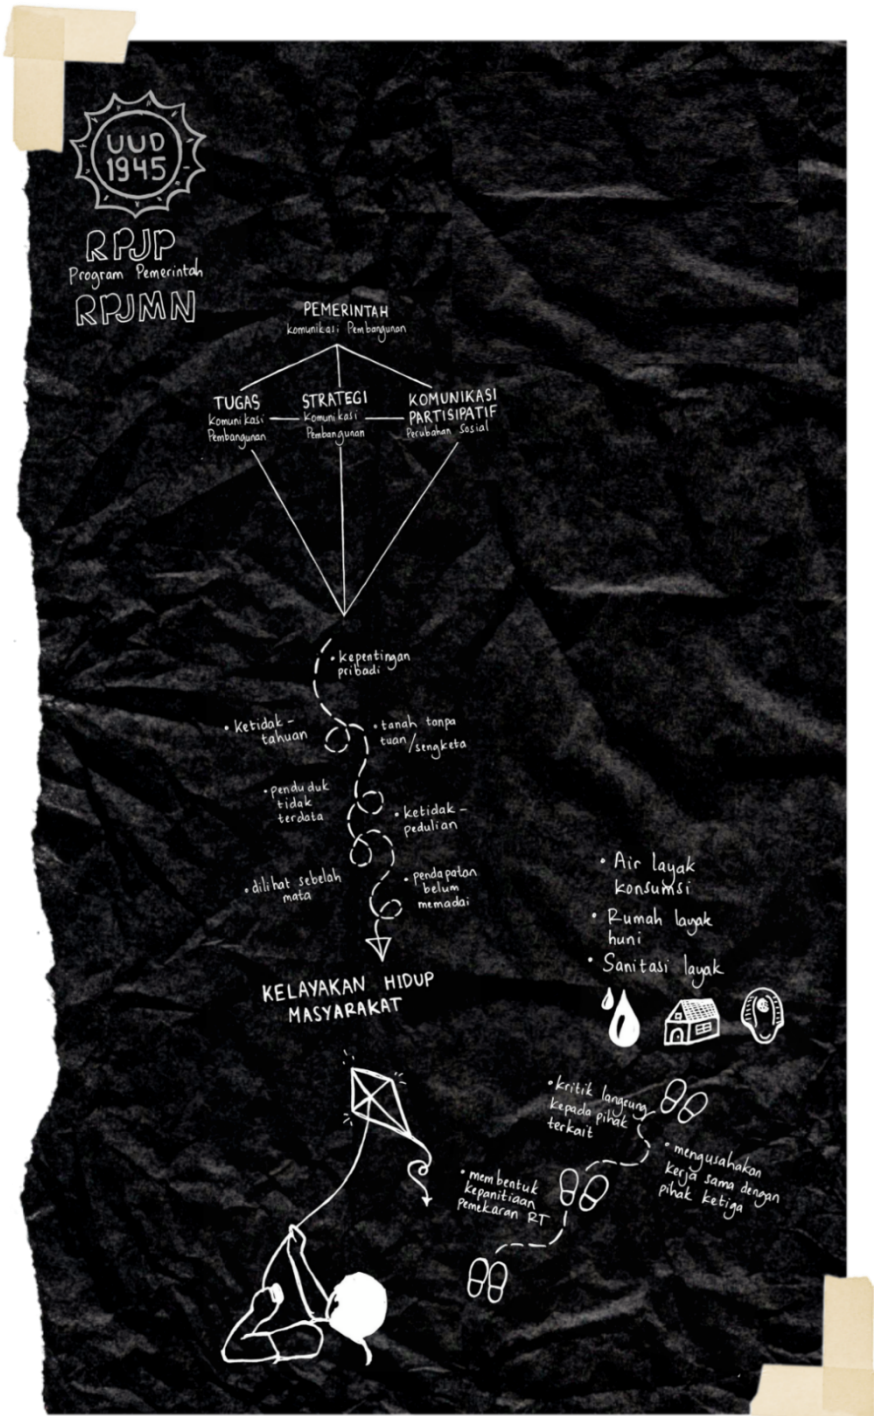 UUD
1945
RPJP
Program Pemerintah
RPJMN
PEMERINTAH
Komunikasi Pembangunan
TUGAS
Komunikasi
Pembangunan
STRATEGI
Komunikasi
Pembangunan
KOMUNIKASI
PARTISIPATIF
Perubahan Sosial
• kepentingan
pribadi
• ketidak-
tahuan
• tanah tanpa
tuan/sengketa
• penduduk
tidak
terdata
• ketidak-
pedulian
• dilihat sebelah
mata
• pendapatan
belum
memadai
KELAYAKAN HIDUP
MASYARAKAT
• Air layak
konsumsi
• Rumah layak
huni
• Sanitasi layak
• kritik langsung
kepada pihak
terkait
• mengusahakan
kerja sama dengan
pihak ketiga
• membentuk
kepanitiaan
pemekaran RT